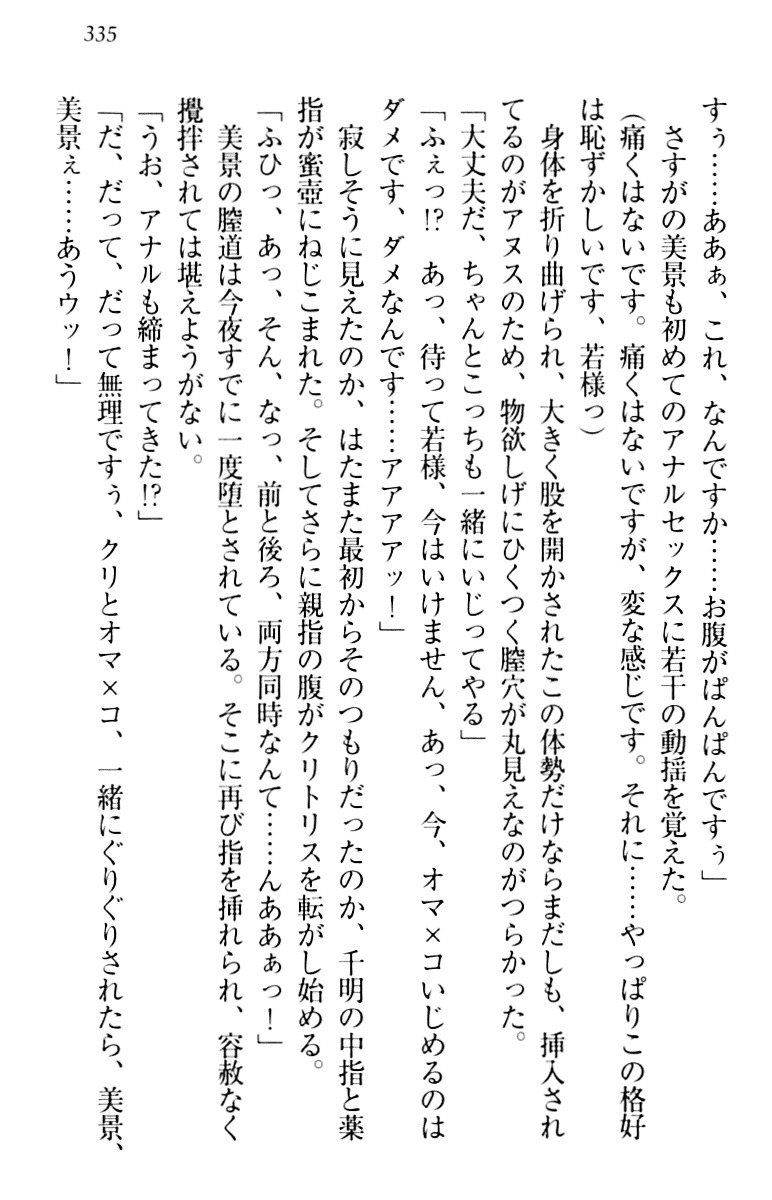 335
すぅ……ああぁ、これ、なんですか……お腹がぱんぱんですぅ」
さすがの美景も初めてのアナルセックスに若干の動揺を覚えた。
(痛くはないです。痛くはないですが、変な感じです。それに……やっぱりこの格好
は恥ずかしいです、若様っ)
身体を折り曲げられ、大きく股を開かされたこの体勢だけならまだしも、挿入され
てるのがアヌスのため、物欲しげにひくつく膣穴が丸見えなのがつらかった。
「大丈夫だ、ちゃんとこっちも一緒にいじってやる」
「ふぇっ!? あっ、待って若様、今はいけません、あっ、今、オマ×コいじめるのは
ダメです、ダメなんです……アアアアッ!」
寂しそうに見えたのか、はたまた最初からそのつもりだったのか、千明の中指と薬
指が蜜壺にねじこまれた。そしてさらに親指の腹がクリトリスを転がし始める。
「ふひっ、あっ、そん、なっ、前と後ろ、両方同時なんて……んああぁっ!」
美景の膣道は今夜すでに一度堕とされている。そこに再び指を挿れられ、容赦なく
攪拌されては堪えようがない。
「うお、アナルも締まってきた!?」
「だ、だって、だって無理ですぅ、クリとオマ×コ、一緒にぐりぐりされたら、美景、
美景ぇ……あうウッ!」